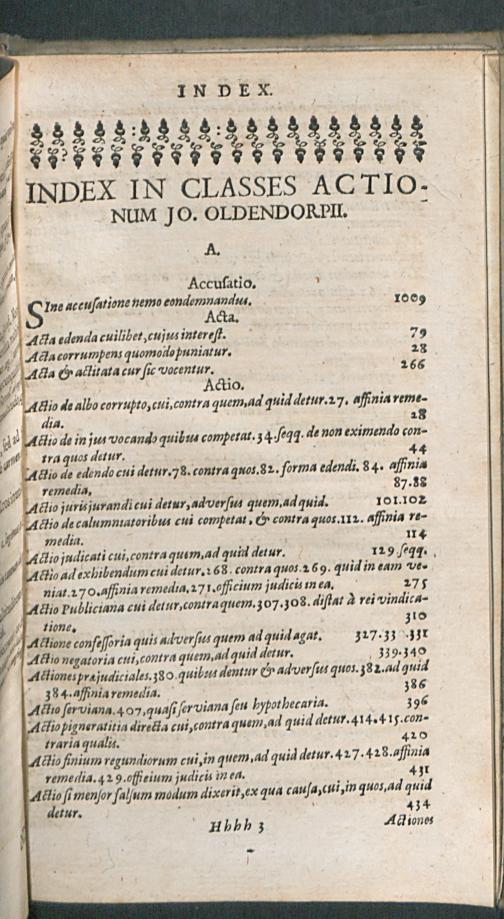 INDEX.
INDEX IN CLASSES ACTIO-
NUM JO. OLDENDORPII.
A.
Accuſatio.
SIne accuſatione nemo condemnandus. 1009
Acta.
Acta edenda cuilibet, cujus intereſt. 79
Acta corrumpens quomodo puniatur. 28
Acta & actitata cur ſic vocentur. 266
Actio.
Actio de albo corrupto, cui, contra quem, ad quid detur. 27. affinia reme-
dia. 28
Actio de in jus vocando quibus competat. 34. ſeqq. de non eximendo con-
tra quos detur. 44
Actio de edendo cui detur. 78. contra quos. 82. forma edendi. 84. affinia
remedia. 87.88
Actio jurisjurandi cui detur, adverſus quem, ad quid. 101.102
Actio de calumniatoribus cui competat, & contra quos. 112. affinia re-
media. 114
Actio judicati cui, contra quem, ad quid detur. 129 ſeqq.
Actio ad exhibendum cui detur. 268. contra quos. 269. quid in eam ve-
niat. 270. affinia remedia. 271. officium judicis in ea. 275
Actio Publiciana cui detur, contra quem. 307.308. diſtat à rei vindica-
tione. 310
Actione confeſſoria quis adverſus quem ad quid agat. 327.33 .331
Actio negatoria cui, contra quem, ad quid detur. 339.340
Actiones præjudiciales. 380. quibus dentur & adverſus quos. 382. ad quid
384. affinia remedia. 386
Actio ſerviana. 407, quaſi ſerviana ſeu hypothecaria. 396
Actio pigneratitia directa cui, contra quem, ad quid detur. 414.415. con-
traria qualis. 420
Actio finium regundiorum cui, in quem, ad quid detur. 427.428. affinia
remedia. 429. officium judicis in ea. 431
Actio ſi menſor falſum modum dixerit, ex qua cauſa, cui, in quos, ad quid
detur. 434
Hhhh 3 Actiones